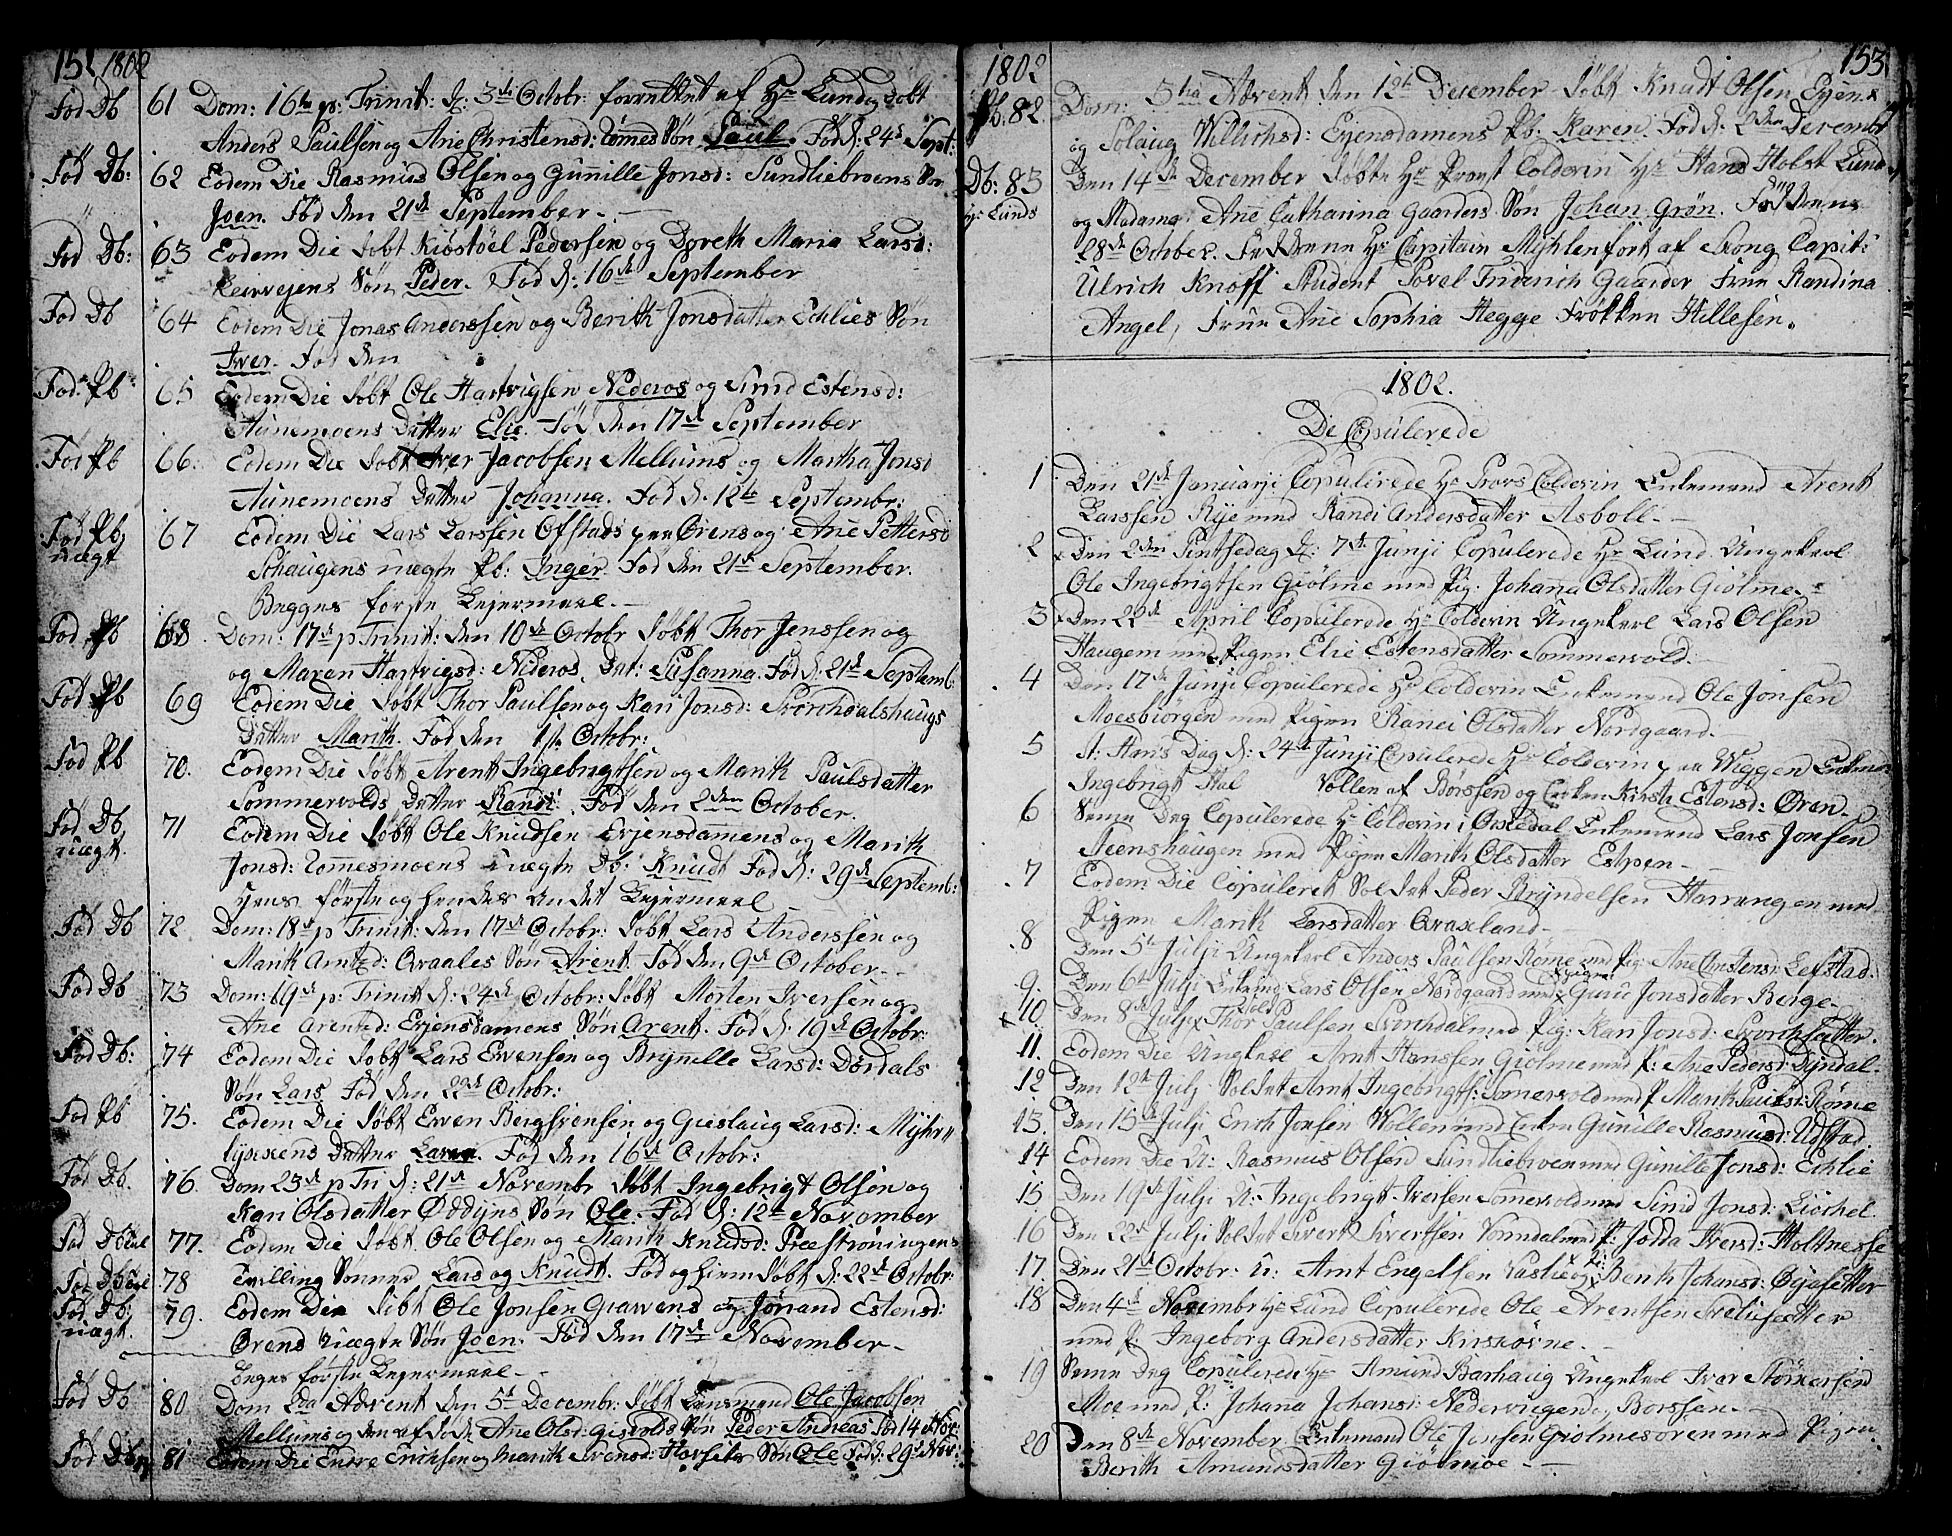 152 1802
Fød Db 61 Dom: 16de p: Trinit: d: 3de Octobr: forrettet af Hr Lund, døbt
Anders Paulsen og Ane Christensd: Rømes Søn Paul. Fød d: 24de Sept:
Fød Db: 62 Eodem Die Rasmus Olsen og Gunille Jonsd: Sundliebroens Søn
Joen. Fød den 21de September.
Fød Db: 63 Eodem Die døbt Kiøstøel Pedersen og Doreth Maria Larsd:
Søn Peder. Fød d: 16de September
Fød Db 64 Eodem Die Jonas Anderssen og Berith Jonsdatter Echlies Søn
Iver. Fød den
Fød Pb 65 Eodem Die døbt Ole Hartvigsen Nederos og Sirid Estensd:
Aunemoens Datter Elie. Fød den 17de September
Fød Pb 66. Eodem Die døbt Iver Jacobsen Mellums og Martha Jonsd
Aunemoens Datter Johanna. Fød d. 12te Septembr:
Fød Pb uægt 67 Eodem Die Lars Larssen Ofstads paa Ørens og Ane Pettersd
Schaugens uægte Pb: Inger. Fød den 21de September.
Begges første Leiermaal.
Fød Pb 68. Dom: 17de p Trinit: den 10de Octobr døbt Thor Jenssen og
og Maren Hartvigsd: Nideros Dat: Susanna. Fød d: 21de Septemb:
Fød Pb 69 Eodem Die døbt Thor Paulsen og Kari Jonsd: Storchdalshaugs
Datter Marith. Fød den 1ste Octobr:
Fød Pb 70. Eodem Die døbt Arent Ingebrigtsen og Marith Paulsdatter
Sommervolds Datter Randi. Fød den 2den October.
Fød Db uægt. 71 Eodem Die døbt Ole Knudsen Evjensdamens og Marith
Jonsd: Rømesmoens uægte Db: Knudt Fød d: 29de Septemb:
Hans første og hendes andet Lejermaal
Fød Db 72 Dom: 18de p Trinit: den 17de Octobr: døbt Lars Anderssen og
Marit Arntzd: Qvaales Søn Arent. Fød den 9de October.
Fød Db 73 Dom: 19de p: Trinit d: 24de Octobr: døbt Morten Iversen og
Ane Arentsd: Evjensdamens Søn Arent. Fød d: 19de Octobr:
Fød Db: 74 Eodem Die døbt Lars Evensen og Brynille Larsd: Dørdals
Søn Lars Fød den 22de Octobr:
Fød Pb 75. Eodem Die døbt Ewen Bergsvensen og Gieslaug Larsd: Myhr
Datter Fød den 16de Octobr:
Fød Db. 76. Dom 23de p Tri d: 21de Novembr døbt Ingebrigt Olsen og
Kari Olsdatter Øddyns Søn Ole. Fød d: 12te November
Fød Db 77. Eodem Die døbt Ole Olsen og Marith Knudsd: Præstrøningens
Fød Db 78 Tvilling Sønner Lars og Knudt. Fød og hiemdøbt d: 22de Octobr:
Fød Db: uægt. 79. Eodem Die døbt Ole Jonsen Grawens og Jørand Estensd:
Ørens uægte Søn Joen. Fød den 17de November
Beges første Lejermaal
Fød Db 80 Dom 2da Advent den 5te Decembr: døbt Lensmand Ole Jacobsen
Mellums og Ane Olsd: Søn Peder Andreas Fø 14de Nov
Fød Db 81 Eodem Die Endre Erichsen og Marith Svensd: Horsetes Søn Ole Fød d: 29de Nov:
1802 153
Pb. 82. Dom: 3tia Advent den 12te December døbt Knudt Olsen Evjens
og Solaug Willichsd: Evjensdamens Pb: Karen. Fød d: 2den Decembr
Db: 83 Den 14de December døbte Hr Provst Colderin Hr Hans Holst Lund
Hr Lunds og Madame Ane Catharina Gaarders Søn Johan Grøn. Fød dennes
28de October. Fadderne Hr Capitain Myhlenfort af Krong Capit:
Ulrich Knoff Student Povel Friderich Gaarder Frue Randina
Angel, Frue Ane Sophia Hegge Frøkken Hillesen.
1802.
De Copulerede
1 Den 21de Januarji Copulerede Hr Provs Colderin Enkemand Arent
Larssen Rye med Randi Andersdatter Asboll.
2 Den 2den Pintsedag d: 7de Junji Copulerede Hr Lund Ungekarl
Ole Ingebrigtsen Giølme med Pig: Johana Olsdatter Giølme.
3 Den 22de April Copulerede Hr Colderin Ungekarl Lars Olsen
Haugem med Pigen Elie Estensdatter Sommervold.
4 Den 17de Junji Copulerede Hr Colderin Enkemand Ole Jonsen
Moesbiørgen med Pigen Ranei Olsdatter Nordgaard.
5 St: Hans Dag d: 24de Junji Copulerede Hr Colderin paa Wiggen Enkem
Ingebrigt Hol Vollen af Børssen og Enken Kirsti Estensd: Øren
6 Samme Dag Copulerede Hr Colderin i Orkedal Enkemand Lars Jonsen
Steenshaugen med Pigen Marith Olsdatter Estpen
7 Eodem Die Copuleret Soldat Peder Bryndelsen Harrangen med
Pigen Marith Larsdatter Qvaxland
8 Den 5te Julji Ungekarl Anders Paulsen Røme med Pig: Ane Christensd: Lefstad.
9. Den 6te Julji Enkemd Lars Olsen Nordgaard med Pigen Guru Jonsdatter Berge
10 Den 8de Julji Sold Thor Paulsen Storchdal med Pig: Kari Jonsd: Storchsætter.
11. Eodem Die Ungkarl Arnt Hanssen Giølme med P: Ane Pedersd: Dyndal.
12 Den 12te Julj Soldat Arnt Ingebrigts: Somervold med P Marit Paulsd: Røme
13. Den 15de Julji Erich Jonsen Wollen med Enken Gunille Rasmusd: Udstad.
14 Eodem Die U: Rasmus Olsen Sundliebroen med Gunille Jonsd: Echlie
15 Den 19de Julji U: Ingebrigt Iversen Somervold med Sirid Jonsd: Liøchel.
16 Den 22de Julji Soldat Sivert Sivertsen Vormdal med P: Jodda Iversd: Holtnesse
17. Den 21de Octobr. U: Arnt Engelsen Vaslie og Pi: Berit Johansd: Øyesetter
18 Den 4de Novembr Hr Lund Copulerede Ole Arentsen Treliesetter
med P: Ingeborg Andersdatter Kirskovne.
19 Same Dag Copulerede Hr Amund Barhaug Ungekarl Ivar Størkersen
Moe med P: Johana Johansd: Nederviggende, Børssen.
20 Den 8de November Enkemand Ole Jonsen Giølmesøren med Pigen
Berith Amundsdatter Giølmoe.